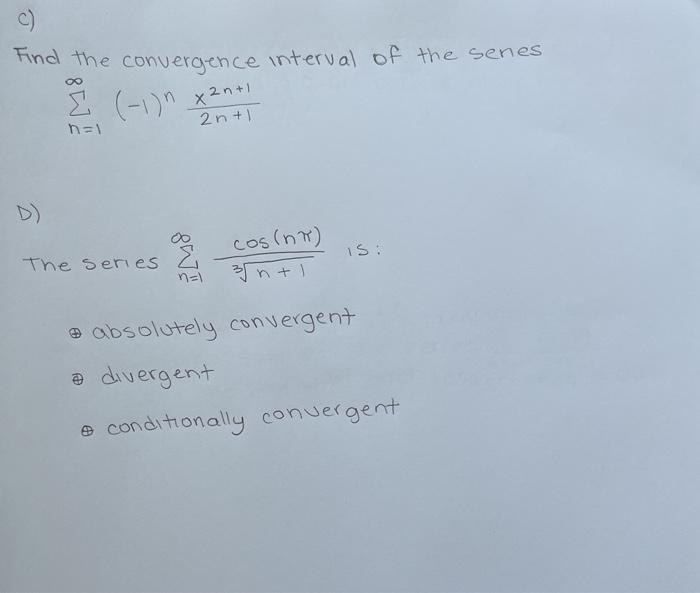 C)
Find the convergence interval of the series
∞
Σ (-1)ⁿ x²ⁿ⁺¹
n=1 2n+1
D)
∞ cos(nπ)
The series Σ ∛n+1 is:
n=1
⊕ absolutely convergent
⊕ divergent
⊕ conditionally convergent